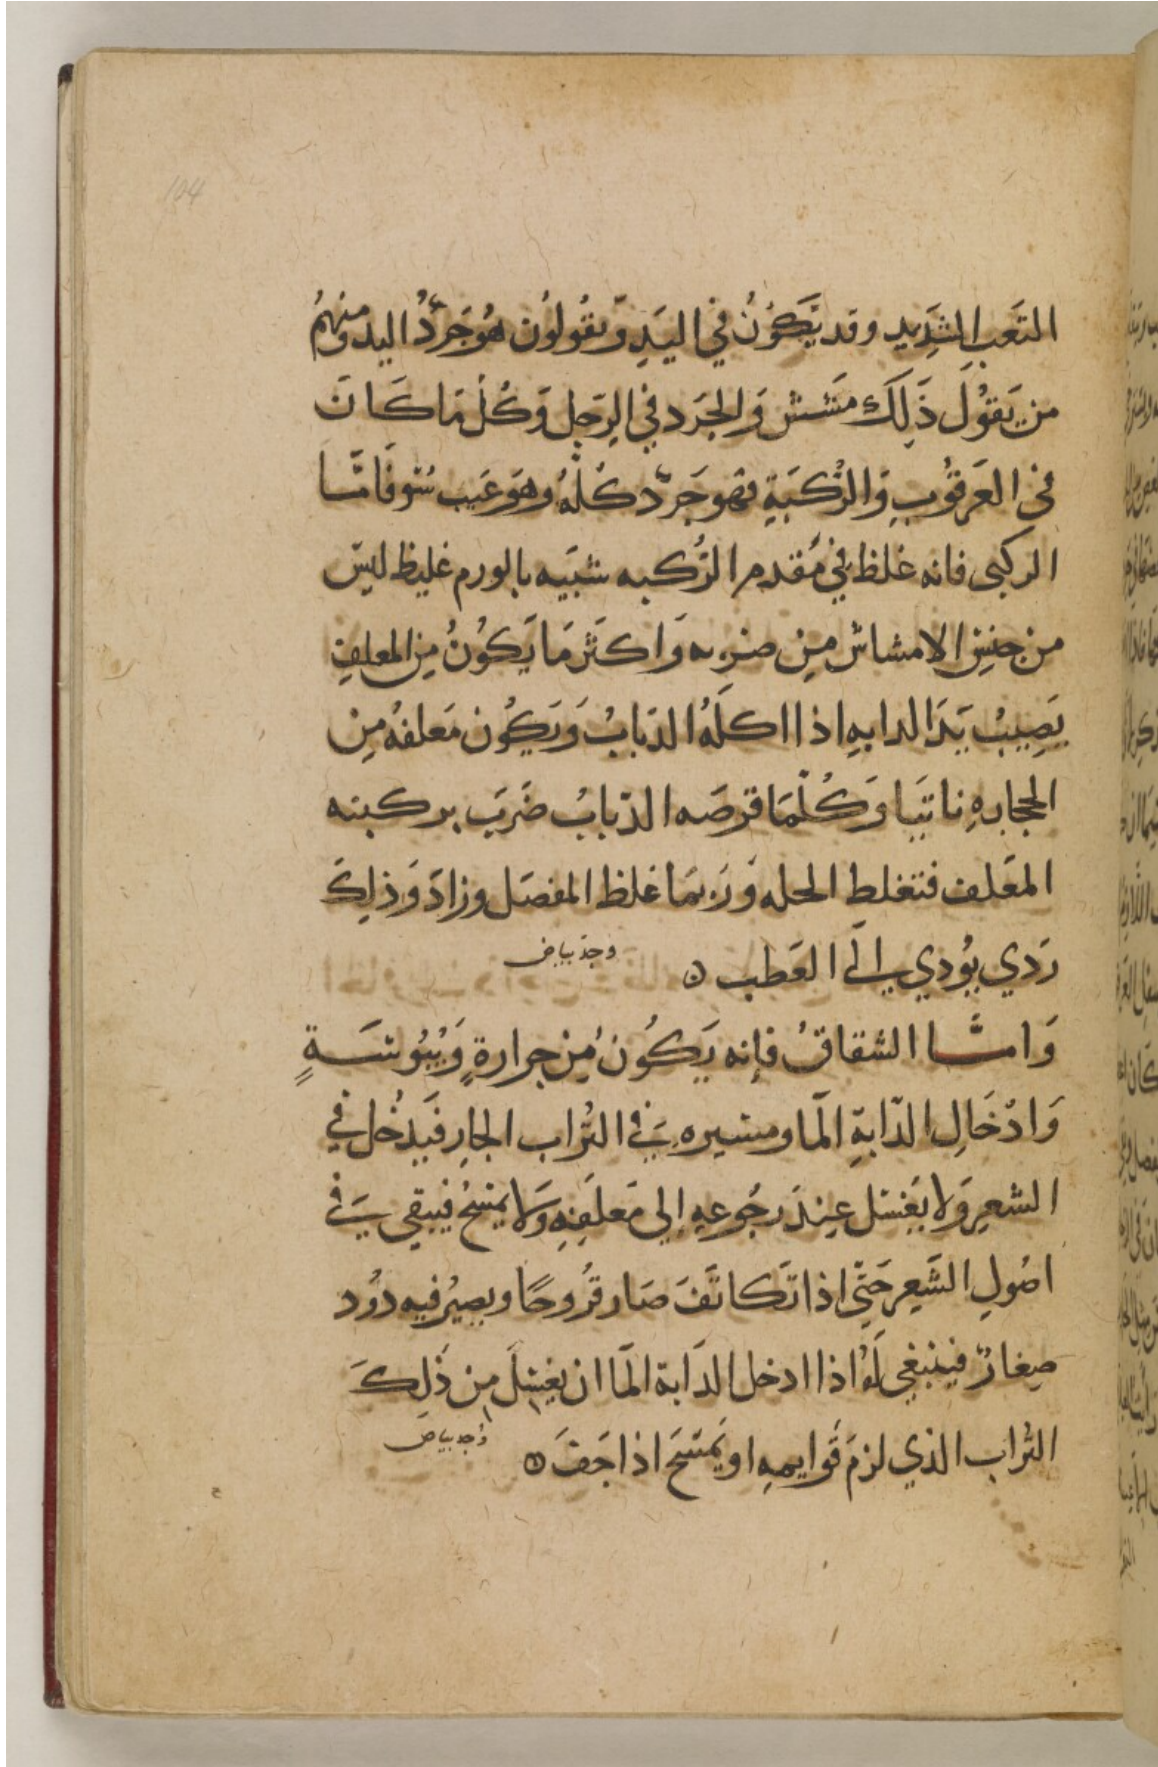 104
التَعب الشَدِيد وقد يَّكَوُنُ في اليَدِ وَّيقُولُون هُوَجَرَدُ اليد ومنهمُ
من يَقوُلَ ذَلِكَ مَشش وَالجَرَد في الرَجِل وَكُلْ مَا كَانَ
في العَرقوُبِ وَالرُكبَةِ فهو جَرَد كُلهُ وهوَ عَيب سُو فَامَّا
الركبى فانه غلظ في مُقدم الرُكبه شبَيه بالورم غليظ ليسَ
من جنسِ الامشاش مِن ضربه وَاكثر مَا يَكوُنُ مِن المعلفِ
يَصِيبُ يَدَا الدابهِ اذا اكلَهُ الدبَابُ وَيَكُون مَعلفهُ مِن
الحجارهِ ناتيَا وَكُلمَا قرصَه الدبابُ ضَرَبَ بركبته
المعَلف فتغلط الجله وَربمَا غلظ المفصَل وزادَ وَذلِكَ
رَدي يوُدي الَى العَطب ٥
وجد بياض
وَامَّا الشقاقُ فإنه يَكُونُ مِن حرارةٍ وَيُبوُسَةٍ
وَادْخَالِ الدّابةِ المَا ومسيره في التُراب الحار فَيدخُل في
الشعرِ وَلا يَغسَل عِندَ رجُوعهِ إلى مَعلفِهِ وَلا يمسَحُ فيبقى في
اصُولِ الشَعِر حَتى اذا تَكاثَفَ صَار قرُوحًا ويصيرُ فيه دوُد
صِغارٌ فينبغي لَوْ اذا ادخل الدَابة المَا ان يغسَلَ مِن ذَلِكَ
التُراب الذي لزمَ قوَايمهِ او يَمسَحَ اذا جَفَ ٥
وجد بياض